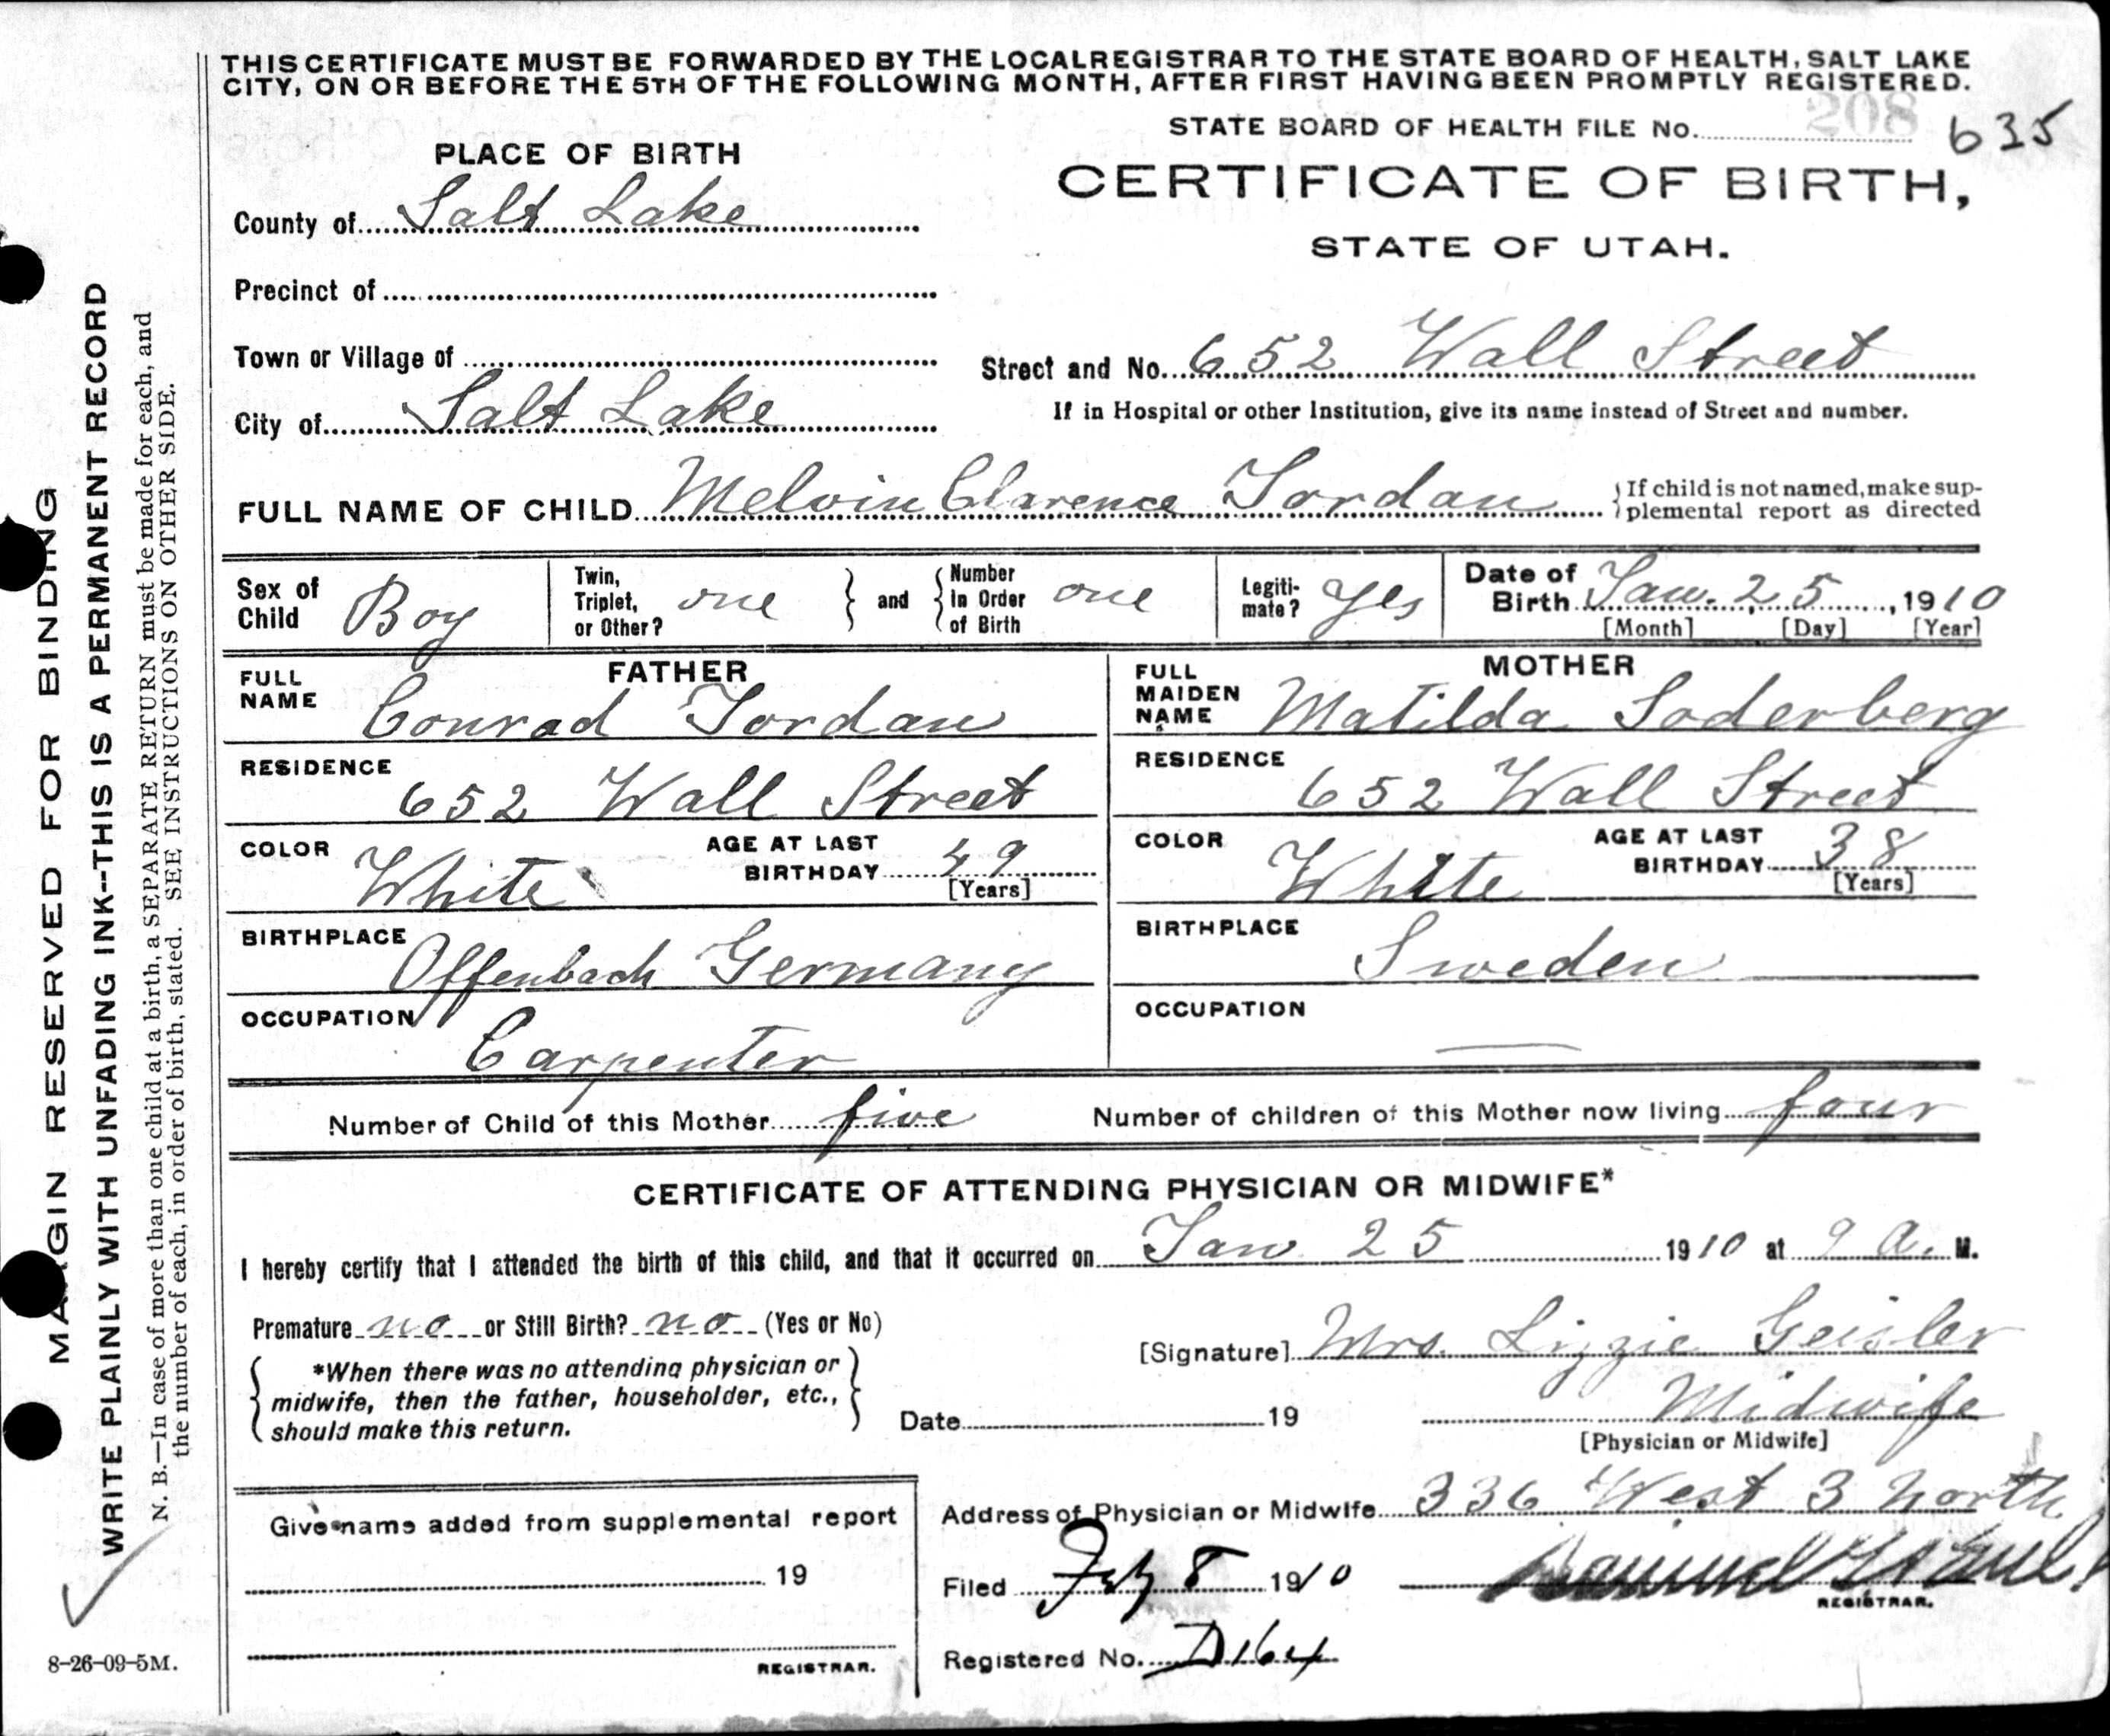 THIS CERTIFICATE MUST BE FORWARDED BY THE LOCAL REGISTRAR TO THE STATE BOARD OF HEALTH, SALT LAKE
CITY, ON OR BEFORE THE 5TH OF THE FOLLOWING MONTH, AFTER FIRST HAVING BEEN PROMPTLY REGISTERED.
STATE BOARD OF HEALTH FILE No. 208 635
PLACE OF BIRTH
CERTIFICATE OF BIRTH,
STATE OF UTAH.
County of Salt Lake
Precinct of
Town or Village of
Street and No. 652 Wall Street
City of Salt Lake
If in Hospital or other Institution, give its name instead of Street and number.
FULL NAME OF CHILD Melvin Clarence Jordan
If child is not named, make sup-
plemental report as directed
Sex of Child Boy
Twin, Triplet, or Other? one and Number In Order of Birth one
Legiti-mate? Yes
Date of Birth Jan. 25, 1910
[Month] [Day] [Year]
FATHER
FULL NAME Conrad Jordan
MOTHER
FULL MAIDEN NAME Matilda Soderberg
RESIDENCE 652 Wall Street
RESIDENCE 652 Wall Street
COLOR White AGE AT LAST BIRTHDAY 49 [Years]
COLOR White AGE AT LAST BIRTHDAY 38 [Years]
BIRTHPLACE Offenbach Germany
BIRTHPLACE Sweden
OCCUPATION Carpenter
OCCUPATION —
Number of Child of this Mother five Number of children of this Mother now living four
CERTIFICATE OF ATTENDING PHYSICIAN OR MIDWIFE*
I hereby certify that I attended the birth of this child, and that it occurred on Jan 25 1910 at 9 A. M.
Premature no or Still Birth? no (Yes or No)
[Signature] Mrs. Lizzie Geisler
*When there was no attending physician or
midwife, then the father, householder, etc.,
should make this return.
Date 19 Midwife
[Physician or Midwife]
Give name added from supplemental report
19
REGISTRAR.
Address of Physician or Midwife 336 West 3 North
Filed Feby 8 1910
REGISTRAR.
Registered No. D164
8-26-09-5M.
MARGIN RESERVED FOR BINDING
WRITE PLAINLY WITH UNFADING INK--THIS IS A PERMANENT RECORD
N. B.—In case of more than one child at a birth, a SEPARATE RETURN must be made for each, and
the number of each, in order of birth, stated. SEE INSTRUCTIONS ON OTHER SIDE.